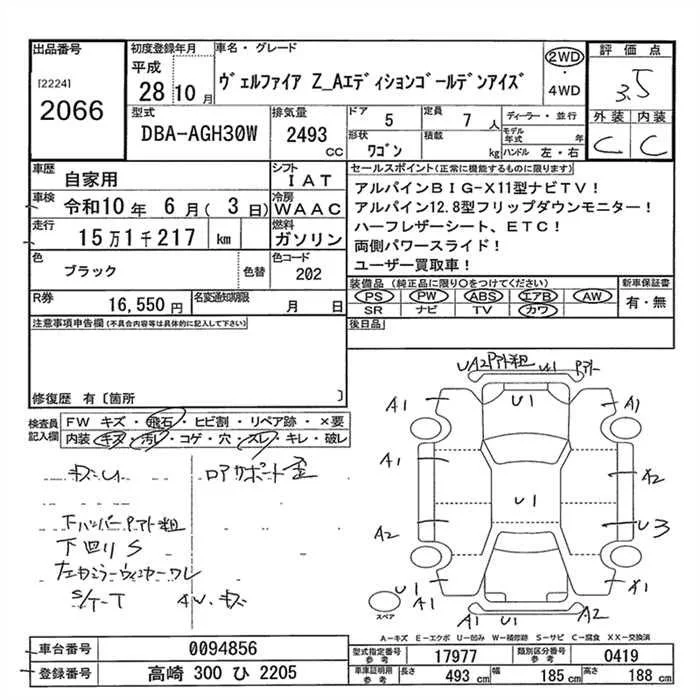 出品番号 初度登録年月 車名・グレード 評価点
[2224] 2066
平成 28 10 月
ヴェルファイア Z_Aエディションゴールデンアイズ
2WD ・ 4WD
3.5
外装 内装
C C
型式 排気量 ドア 5 定員 7 人 ディーラー・並行
DBA-AGH30W 2493 CC
形状 ワゴン 積載 kg モデル年式 年 ハンドル 左・右
車歴 自家用 シフト IAT
車検 令和10 年 6 月 ( 3 日) 冷房 WAAC
走行 15万1千217 km 燃料 ガソリン
色 ブラック 色替 色コード 202
R券 16,550 円 名変通知期限 月 日
セールスポイント(正常に機能するものに限ります)
アルパインBIG-X11型ナビTV!
アルパイン12.8型フリップダウンモニター!
ハーフレザーシート、ETC!
両側パワースライド!
ユーザー買取車!
装備品 (純正品に限り○をつけてください) 新車保証書
PS PW ABS エアB AW 有・無
SR ナビ TV カワ
後日品
注意事項申告欄(不具合内容等は具体的に記入して下さい)
修復歴 有〔箇所 〕
検査員記入欄
FW キズ・飛石・ヒビ割・リペア跡・×要
内装 キズ・汚レ・コゲ・穴・スレ・キレ・破レ
下回り S
A1 U1 A1
A1 A2
U1
A2 U3
U1 A1 A1
A1 U1 A2
スペア
A-キズ E-エクボ U-凹み W-補修跡 S-サビ C-腐食 XX-交換済
車台番号 0094856
登録番号 高崎 300 ひ 2205
型式指定番号 参考 17977 類別区分番号 参考 0419
車庫証明用 参考 長さ 493 cm 幅 185 cm 高さ 188 cm